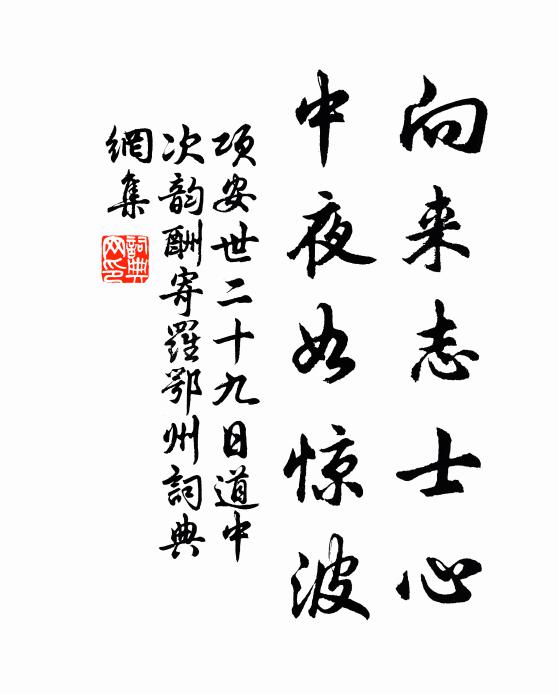 向来志士心
中夜如惊波
项安世二十九日道中
次韵酬寄羅鄂州詞典
網集
詞典網印